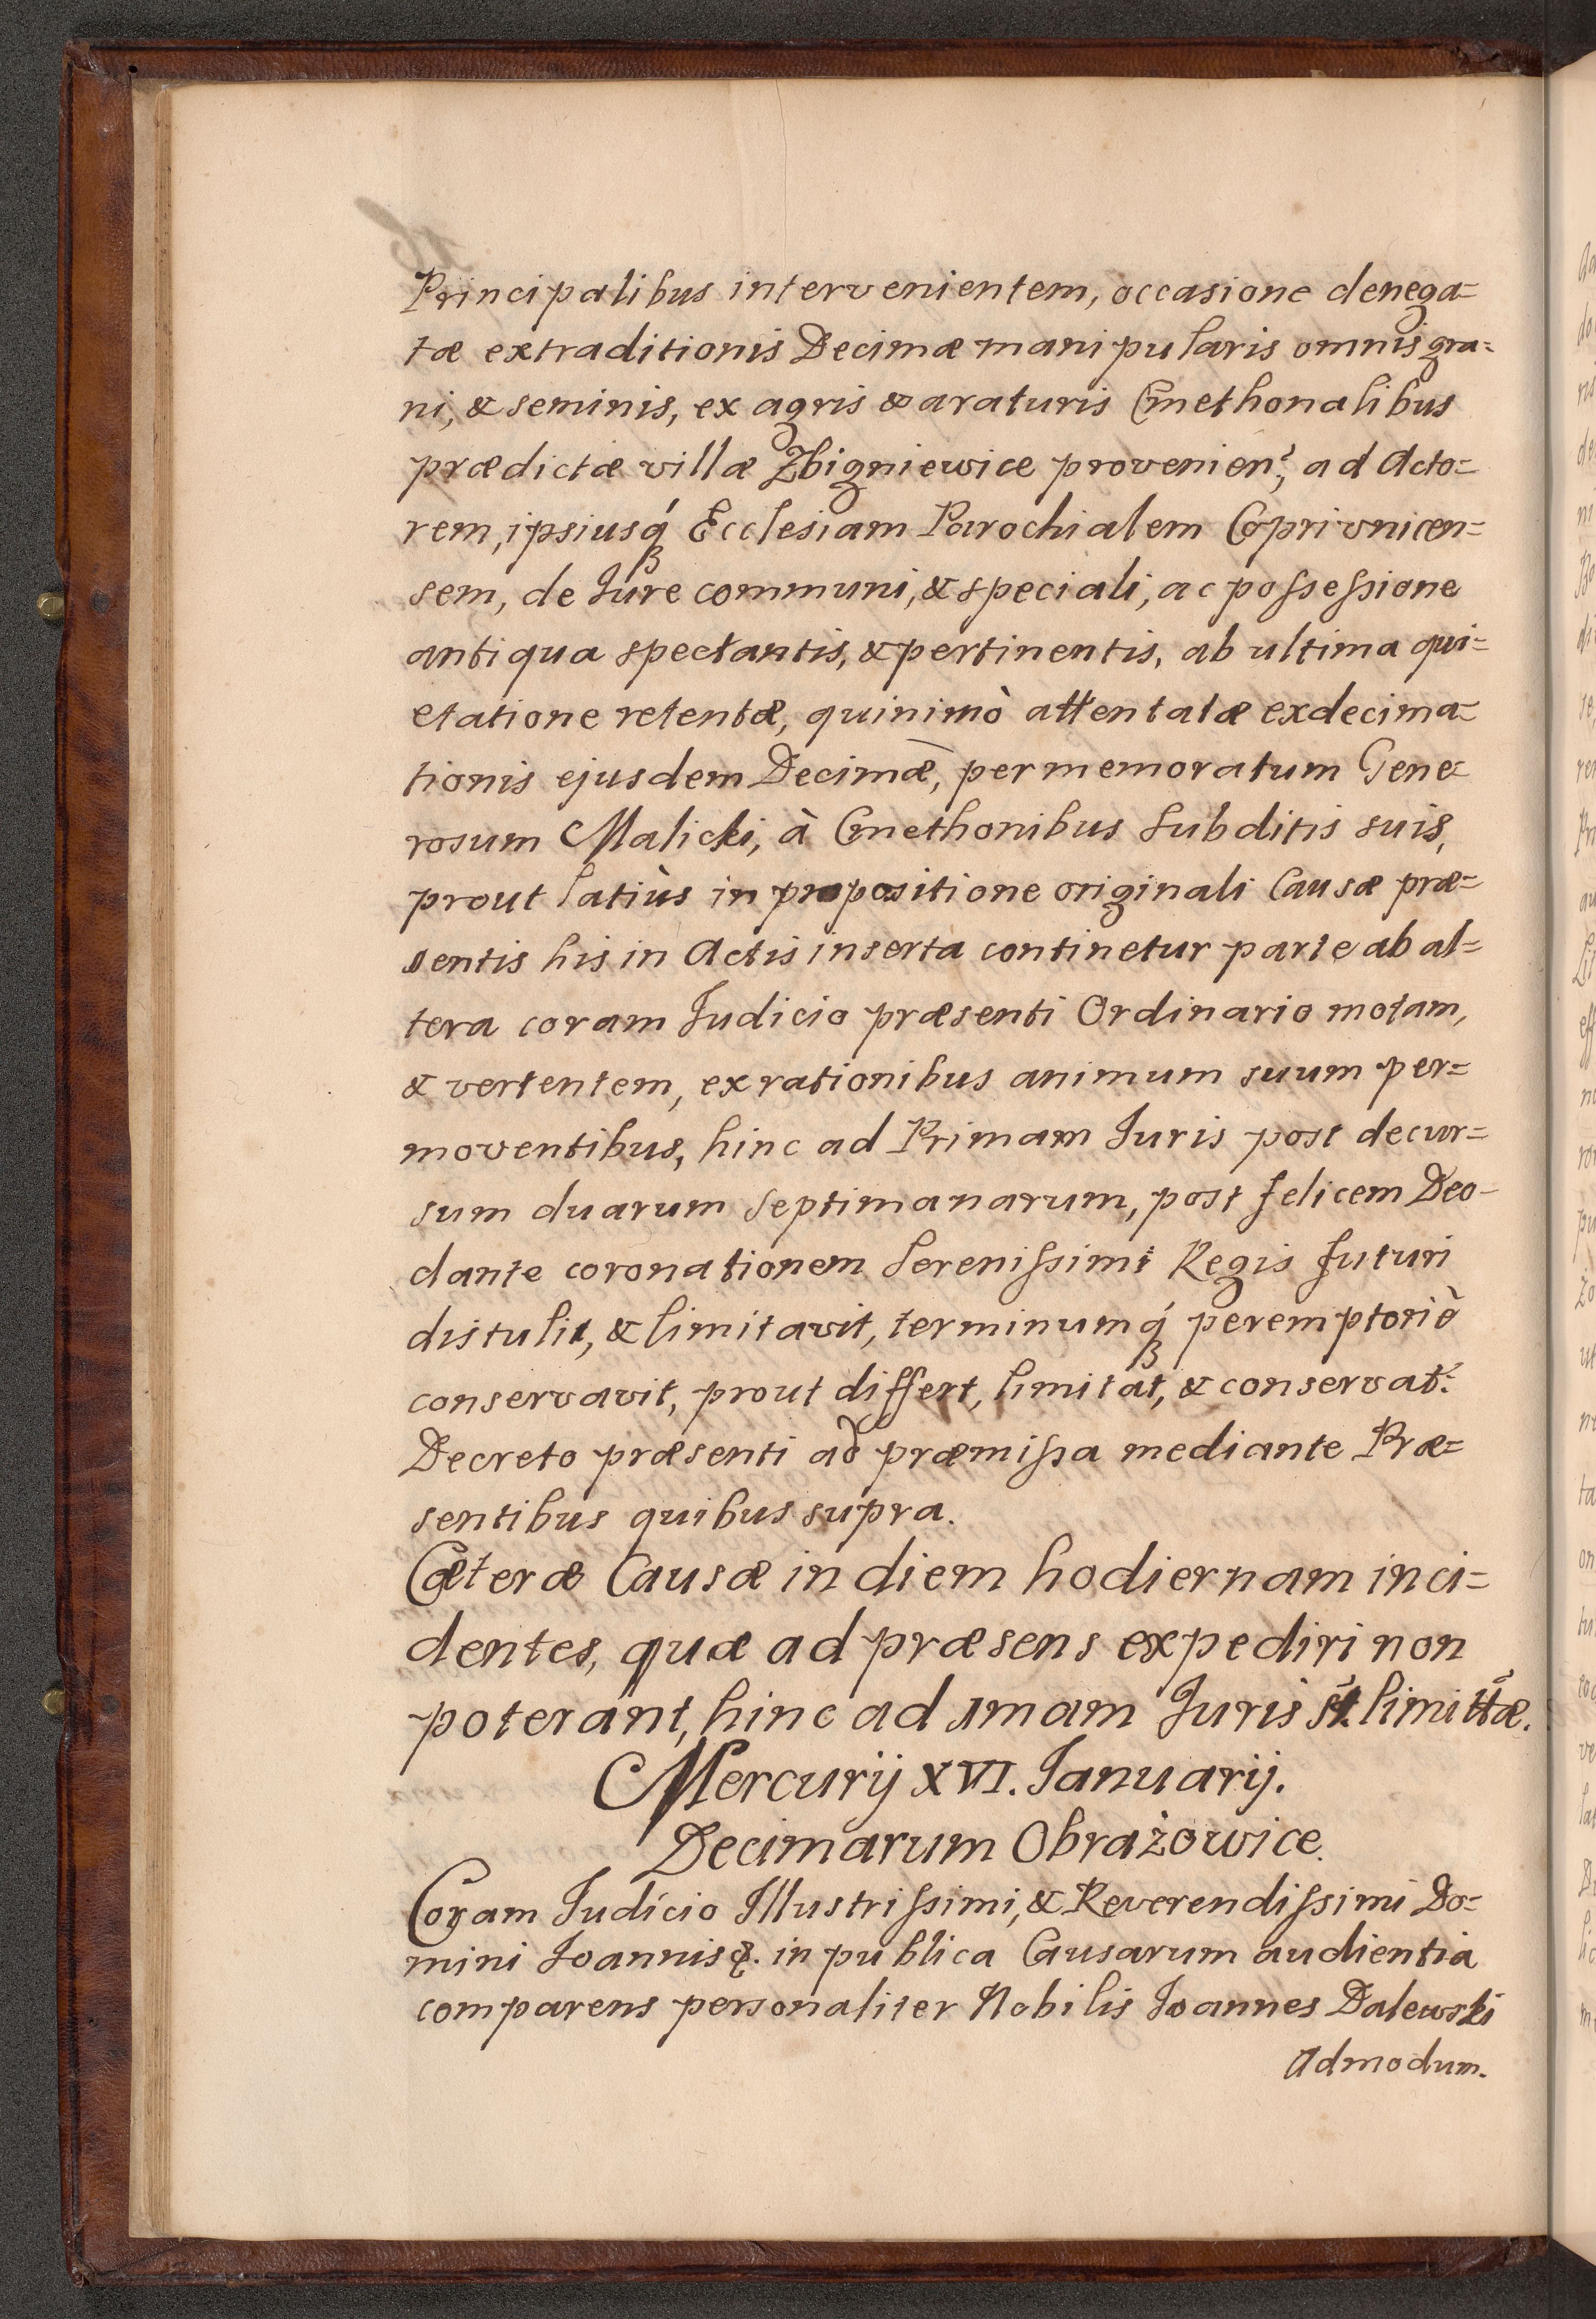 Principalibus intervenientem, occasione denega=
tæ extraditionis Decimæ manipularis omnis gra=
ni, & seminis, ex agris & araturis Cmethonalibus
prædictæ villæ Zbigniewice provenien:, ad Acto=
rem, ipsiusq́ Ecclesiam Parochialem Coprivnicen=
sem, de Jure communi, & speciali, ac poſseſsione
antiqua spectantis, & pertinentis, ab ultima qui=
etatione retentæ, quinimò attentatæ exdecima=
tionis ejusdem Decimæ, per memoratum Gene=
rosum Malicki, à Cmethonibus Subditis suis,
prout latiùs in propositione originali Causæ præ=
sentis his in Actis inserta continetur parte ab al=
tera coram Judicio præsenti Ordinario motam,
& vertentem, ex rationibus animum suum per=
moventibus, hinc ad Primam Juris post decur=
sum duarum Septimanarum, post felicem Deo-
dante coronationem Sereniſsimi Regis futuri
distulit, & limitavit, terminumq́ peremptoriè
conservavit, prout differt, limitat, & conservat:
Decreto præsenti ad præmiſsa mediante Præ=
sentibus quibus supra.
Cæteræ Causæ in diem hodiernam inci=
dentes, quæ ad præsens expediri non
poterant, hinc ad 1mam Juris st. limittæ.
Mercurij XVI. Januarij.
Decimarum Obrażowice.
Coram Judicio Illustriſsimi, & Reverendiſsimi Do=
mini Joannis &. in publica Causarum audientia
comparens personaliter Nobilis Joannes Dalewski
Admodum.